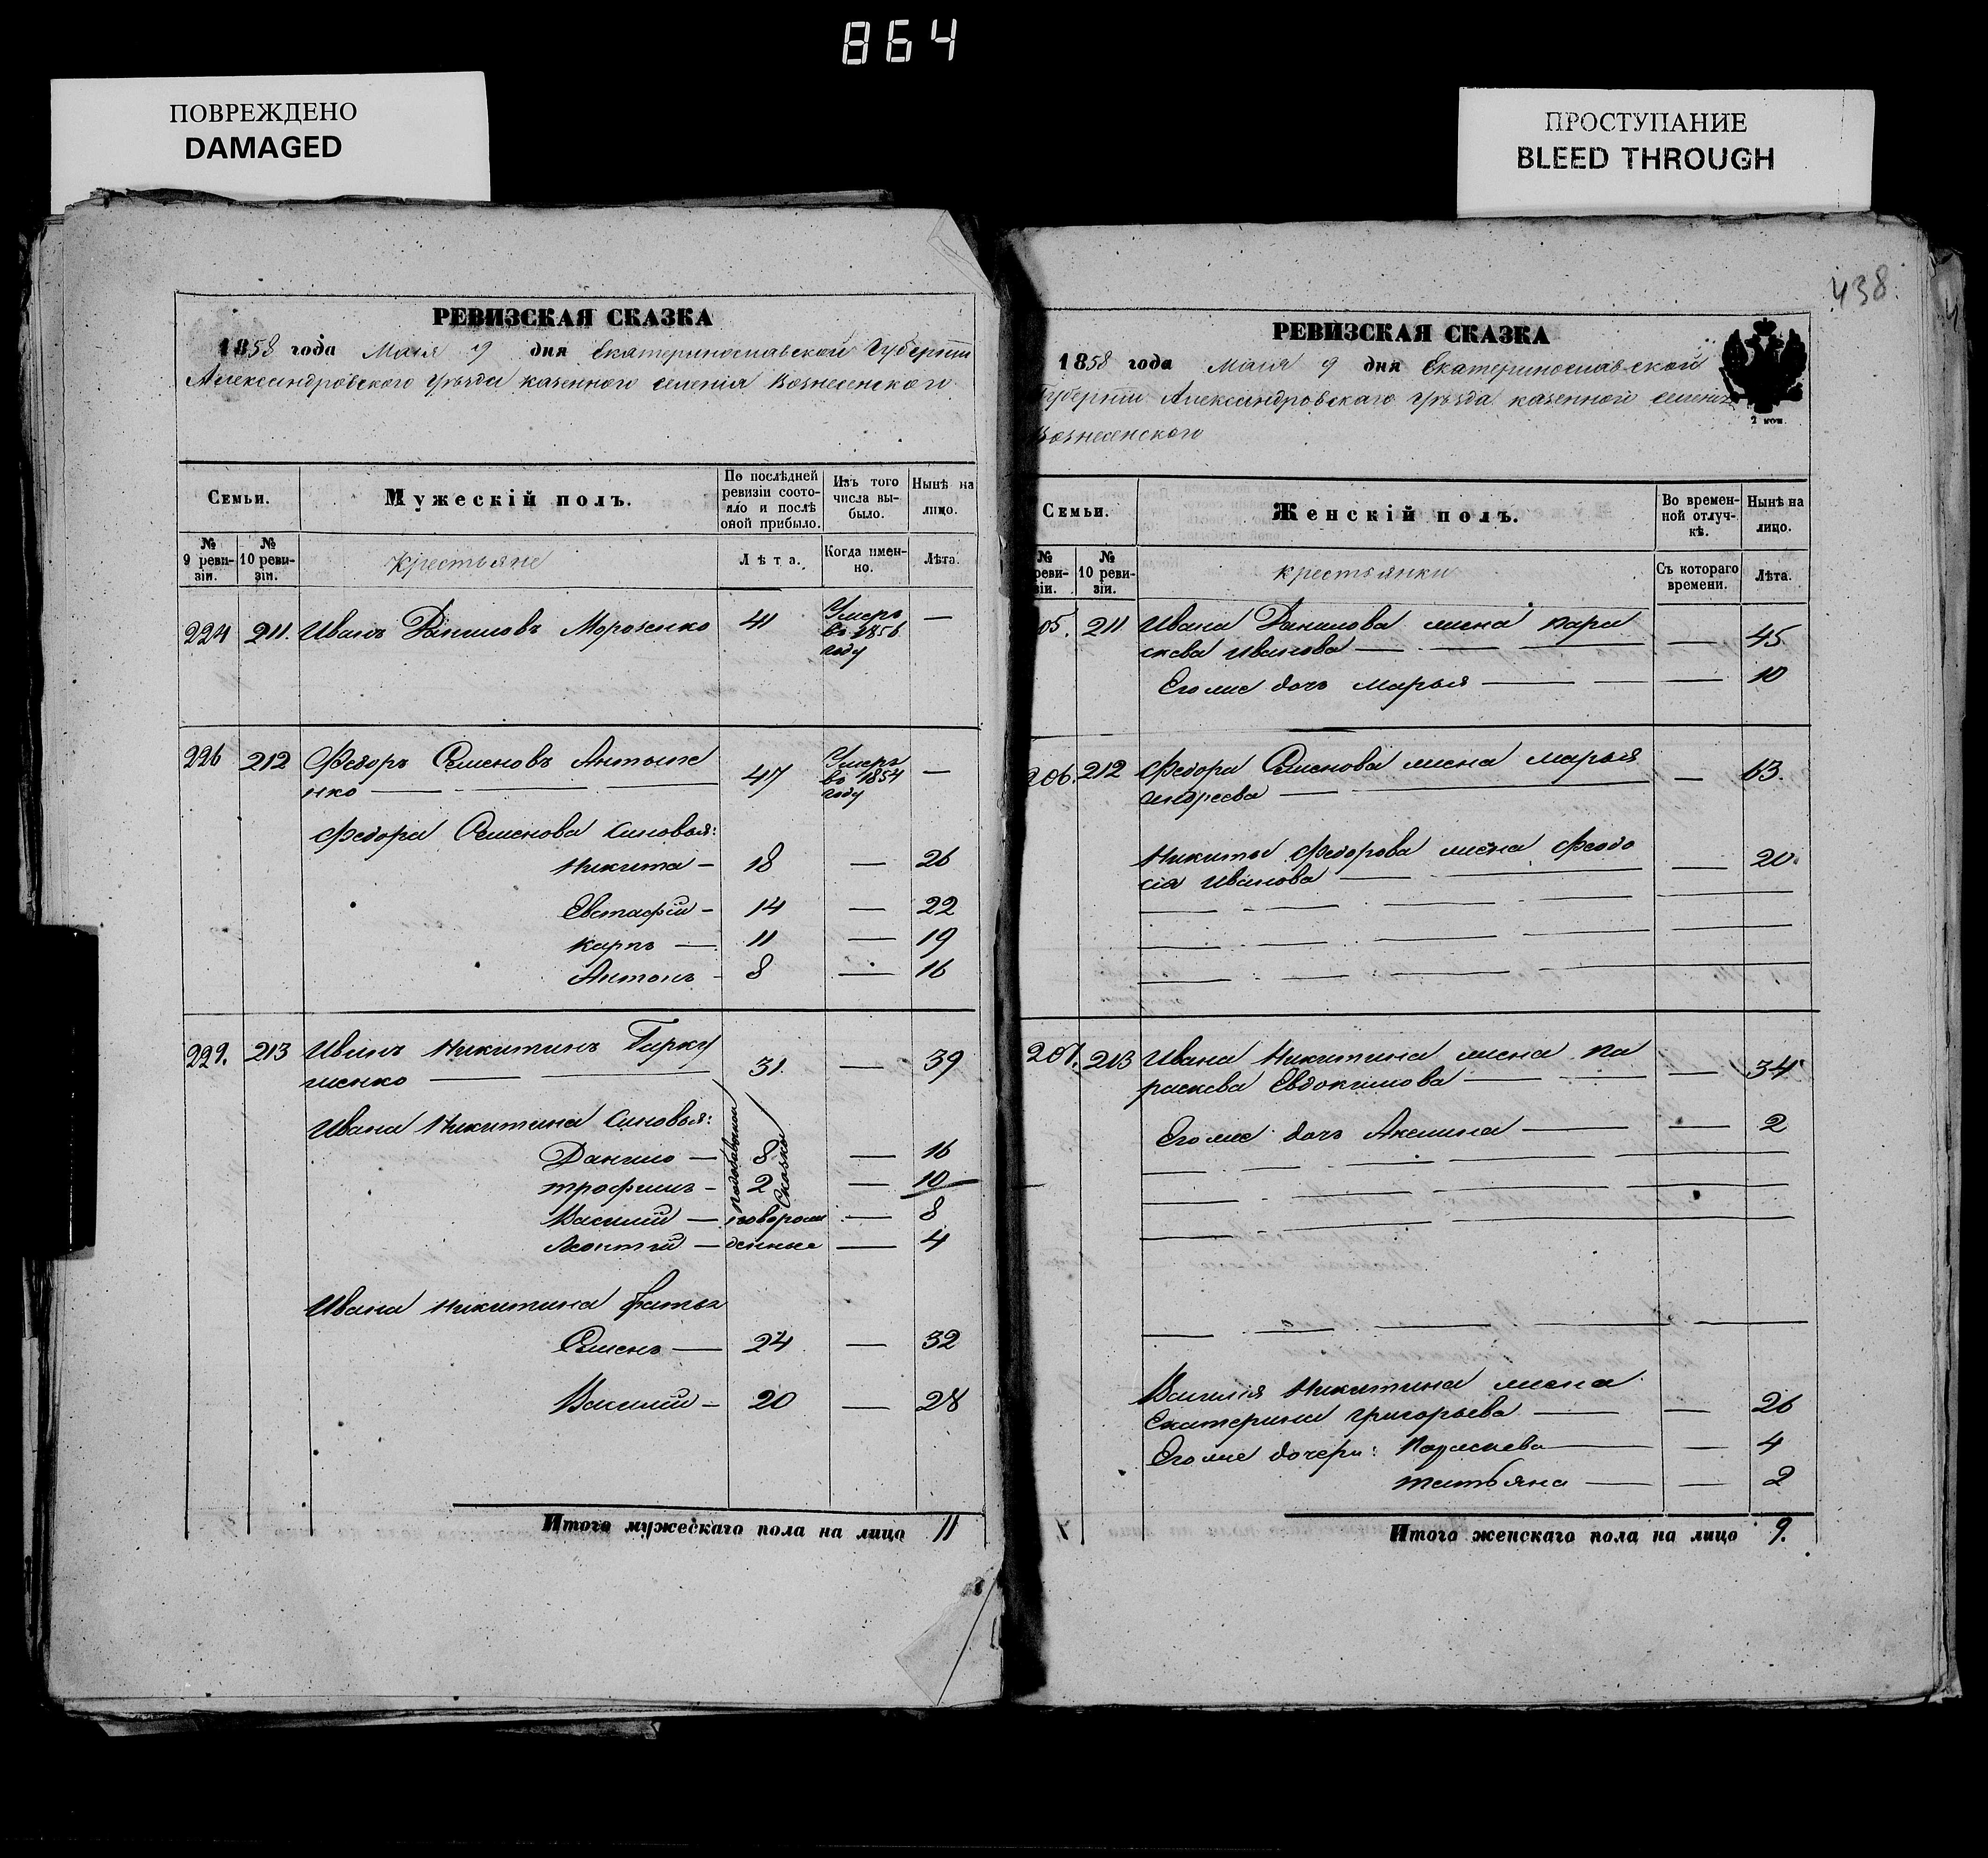 864
ПОВРЕЖДЕНО
DAMAGED
ПРОСТУПАНИЕ
BLEED THROUGH
РЕВИЗСКАЯ СКАЗКА
1858 года Маія 9 дня Екатеринославской Губерніи
Александровского уѣзда казенного селенія Вознесенского
Семьи.
Мужескій полъ.
По послѣдней ревизіи состояло и послѣ оной прибыло.
Изъ того числа выбыло.
Нынѣ на лицо.
№ 9 ревизіи.
№ 10 ревизіи.
крестьяне
Лѣта.
Когда именно.
Лѣта.
224 211. Иванъ Даниловъ Морозенко 41 Умеръ во 1856 году —
226 212 Федоръ Семеновъ Антоне
нко 47 Умеръ во 1854 году —
Федора Семенова сыновья:
Никита — 18 — 26
Евстафій — 14 — 22
Карпъ — 11 — 19
Антонъ — 8 — 16
229. 213 Иванъ Никитинъ Гарку
шенко 31. — 39
Ивана Никитина сыновья:
Данило — 8 — 16
Трофимъ — 2 — 10
Василій — новорож — 8
Леонтій — денные — 4
сказки
Ивана Никитина братья
Семенъ — 24 — 32
Василій — 20 — 28
Итого мужескаго пола на лицо 11
438.
РЕВИЗСКАЯ СКАЗКА
1858 года Маія 9 дня Екатеринославской
Губерніи Александровскаго уѣзда казенной
Вознесенского
2 коп.
Семьи.
Женскій полъ.
Во временной отлучкѣ.
Нынѣ на лицо.
№ реви-зіи.
№ 10 ревизіи.
крестьянки
Съ котораго времени.
Лѣта.
05. 211 Ивана Данилова жена Пара
скева Иванова — — 45
Его же дочь Марья — — 10
206. 212 Федора Семенова жена Марья
Андреева — 63.
Никиты Федорова жена Феодо
сія Иванова — — 20.
207. 213 Ивана Никитина жена Па
раскева Евдокимова — — 34
Его же дочь Акелина — — 2
Василія Никитина жена
Екатерина Григорьева — — 26
Его же дочери: Параскева — — 4
Татьяна — — 2
Итого женскаго пола на лицо 9.